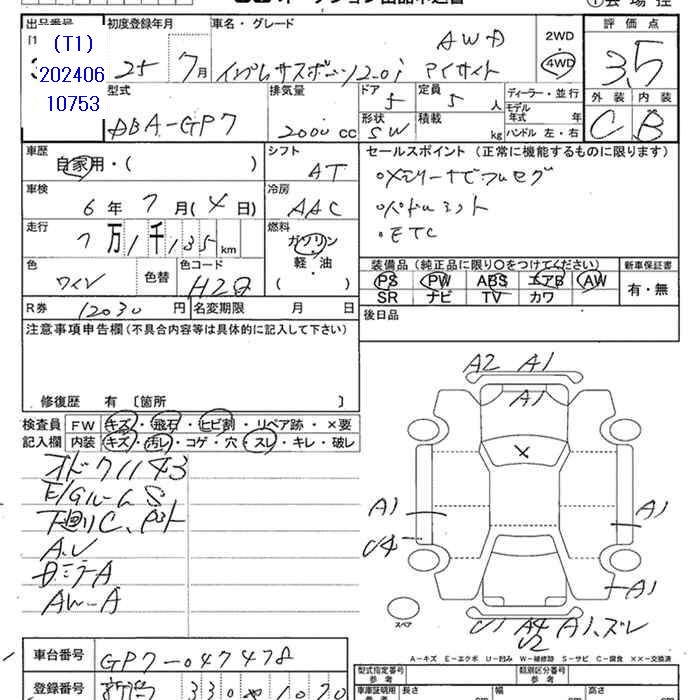 出品番号 初度登録年月 車名・グレード 2WD 4WD 評価点
(T1)
202406
10753
25年 7月 インプレッサスポーツ2.0i アイサイト AWD 3.5
型式 排気量 ドア 5 定員 5人 ディーラー・並行 外装 内装
モデル年式 年
ABA-GP7 2000cc 形状 SW 積載 kg ハンドル 左・右 C B
車歴 シフト セールスポイント (正常に機能するものに限ります)
自家用・( ) AT
車検 冷房
6年 7月(4日) AAC
走行 燃料
7万1千135km ガソリン
・ETC
色 色替 色コード 軽・油
ワイン H2Q ( )
装備品 (純正品に限り○をつけてください) 新車保証書
PS PW ABS エアB AW 有・無
SR ナビ TV カワ
R券 12030円 名変期限 月 日 後日品
注意事項申告欄(不具合内容等は具体的に記入して下さい)
修復歴 有 〔箇所 〕
検査員 FW キズ・飛石・ヒビ割・リペア跡・×要
記入欄 内装 キズ・汚レ・コゲ・穴・スレ・キレ・破レ
E/Gルーム S
下廻りC、
AW-A
A2 A1
A1
A1 A1
U4
A1
スペア
U1 A4 A1、ズレ
U2
A-キズ E-エクボ U-凹み W-補修跡 S-サビ C-腐食 ××-交換済
車台番号 GP7-047478 型式指定番号 類別区分番号
参考 参考
登録番号 330 1070 車庫証明用 長さ 幅 高さ